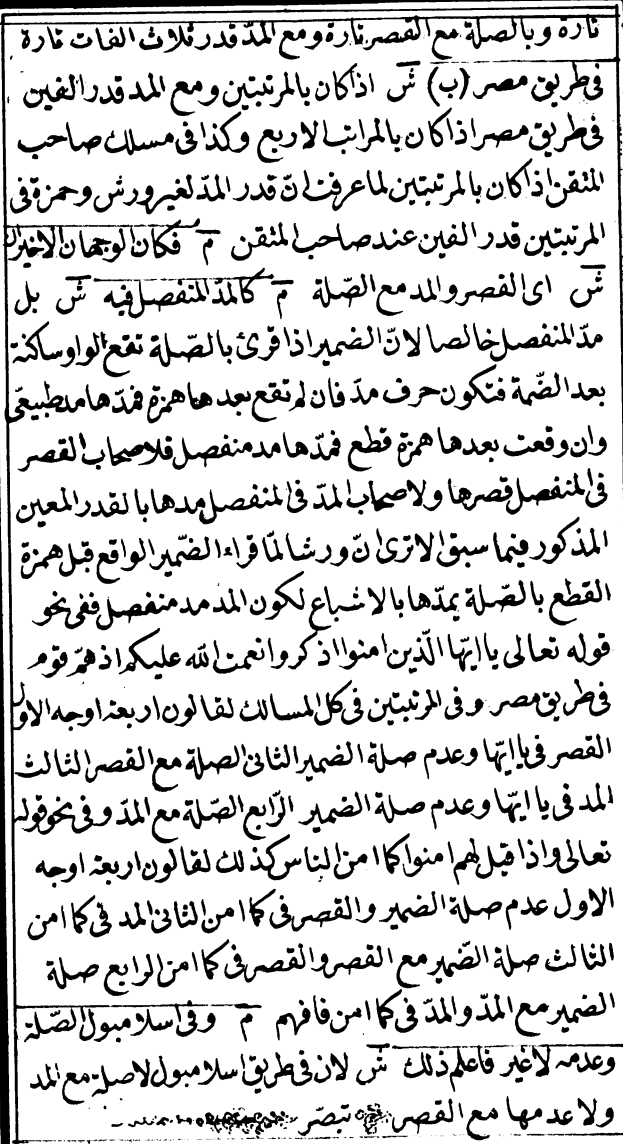 تارة وبالصلة مع القصر تارة ومع المدّ قدر ثلاث الفات تارة
فى طريق مصر (ب) ش اذا كان بالمرتبتين ومع المد قدر الفين
فى طريق مصر اذا كان بالمراتب الاربع وكذا فى مسلك صاحب
المتقن اذا كان بالمرتبتين لما عرفت انّ قدر المدّ لغير ورش وحمزة فى
المرتبتين قدر الفين عند صاحب المتقن م فكان الوجهان الاخيران
ش اى القصر والمد مع الصّلة م كالمدّ المنفصل فيه ش بل
مدّ المنفصل خالصا لانّ الضمير اذا قرئ بالصّلة تقع الواو ساكنة
بعد الضّمة فتكون حرف مدّ فان لم تقع بعدها همزة فمدّها مد طبيعى
وان وقعت بعدها همزة قطع فمدّها مد منفصل فلاصحاب القصر
فى المنفصل قصرها ولاصحاب المدّ فى المنفصل مدها بالقدر المعين
المذكور فيما سبق الا ترى انّ ورشا لمّا قراء الضّمير الواقع قبل همزة
القطع بالصّلة يمدّها بالاشباع لكون المد مد منفصل ففى نحو
قوله تعالى يا ايّها الّذين امنوا اذكروا نعمت الله عليكم اذ همّ قوم
فى طريق مصر وفى المرتبتين فى كل المسالك لقالون اربعة اوجه الاول
القصر فى يا ايّها وعدم صلة الضمير الثانى الصلة مع القصر الثالث
المد فى يا ايّها وعدم صلة الضمير الرّابع الصّلة مع المدّ وفى نحو قوله
تعالى واذا قيل لهم امنوا كما امن الناس كذلك لقالون اربعة اوجه
الاول عدم صلة الضمير والقصر فى كما امن الثانى المد فى كما امن
الثالث صلة الضّمير مع القصر والقصر فى كما امن الرابع صلة
الضمير مع المدّ والمدّ فى كما امن فافهم م وفى اسلامبول الصّلة
وعدمه لا غير فاعلم ذلك ش لان فى طريق اسلامبول لا صلة مع المد
ولا عدمها مع القصر تبصّر